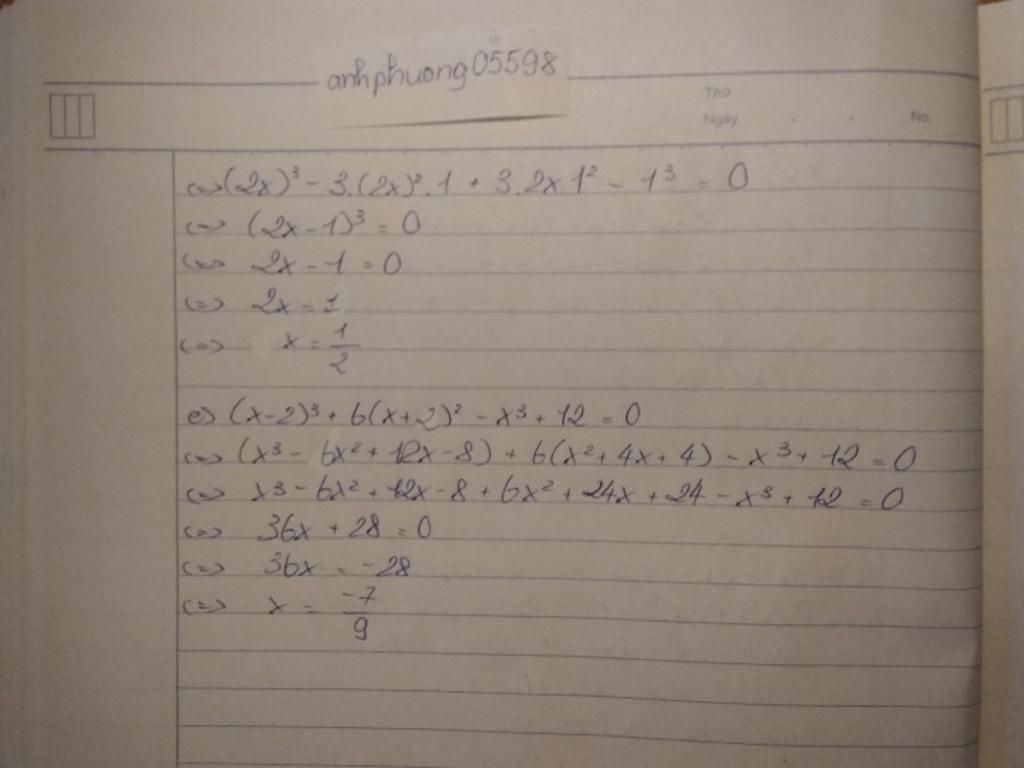 anhphuong05598
Thứ
Ngày
No.
<=> (2x)³ - 3.(2x)².1 + 3.2x.1² - 1³ = 0
<=> (2x-1)³ = 0
<=> 2x - 1 = 0
<=> 2x = 1
<=> x = 1/2
e) (x-2)³ + 6(x+2)² - x³ + 12 = 0
<=> (x³ - 6x² + 12x - 8) + 6(x² + 4x + 4) - x³ + 12 = 0
<=> x³ - 6x² + 12x - 8 + 6x² + 24x + 24 - x³ + 12 = 0
<=> 36x + 28 = 0
<=> 36x = -28
<=> x = -7/9